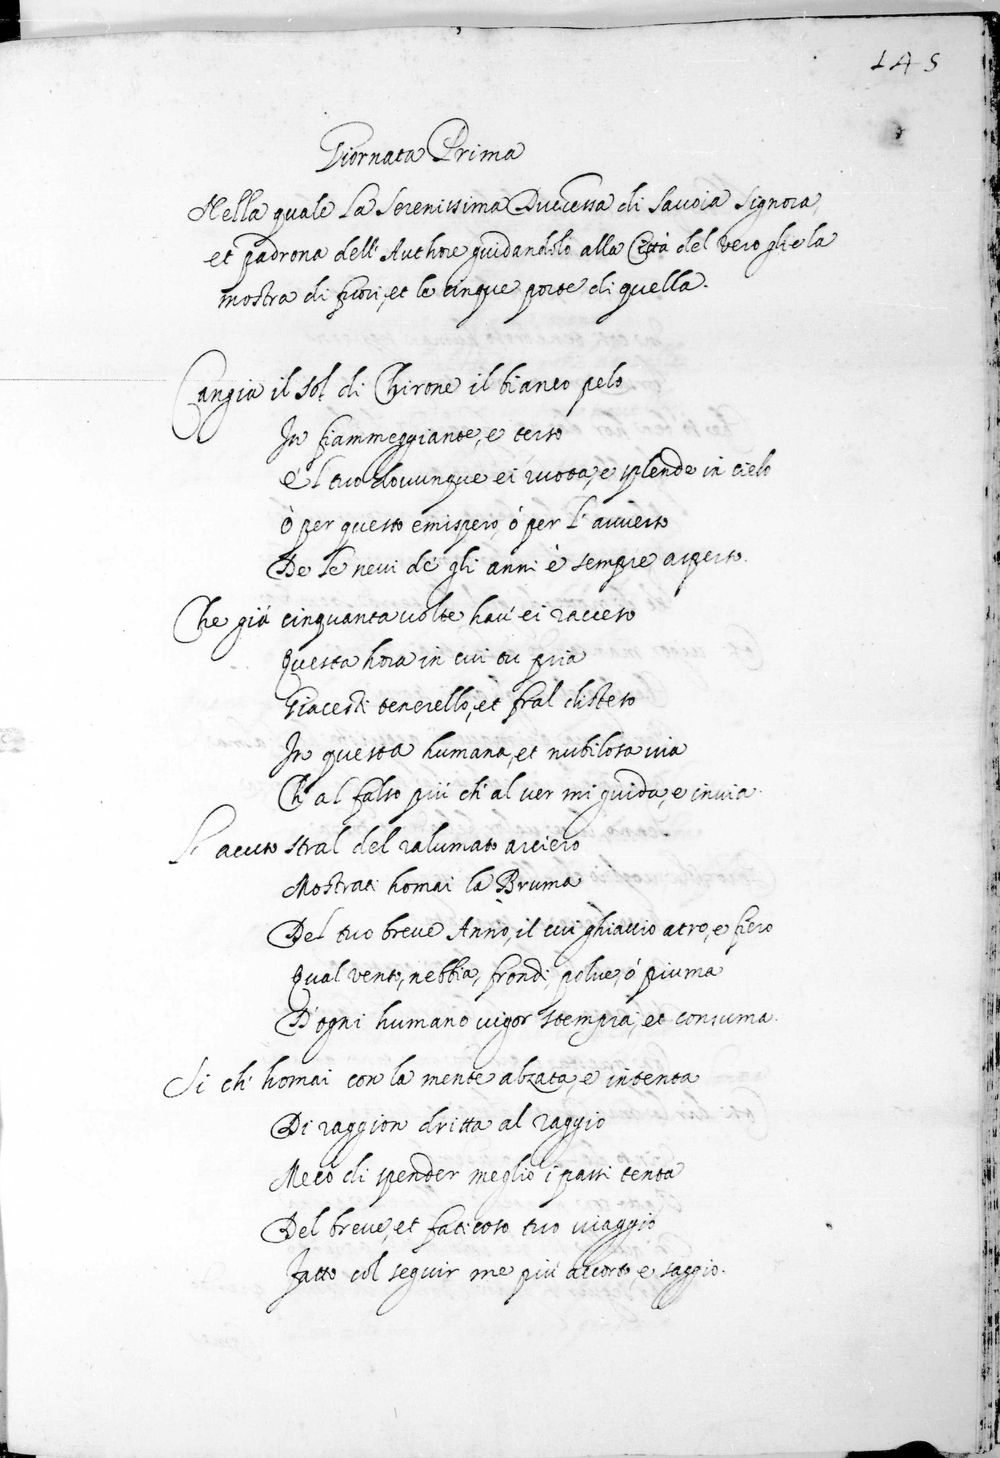 145
Giornata Prima
Nella quale la Serenissima Duccessa di Savoia Signora,
et padrona dell' Authore guidandolo alla Città del vero gliela
mostra di fuori, et le cinque porte di quella.
Cangia il sol di Chirone il bianco pelo
In fiammeggiante, e terso
E 'l tuo dovunque ei ruota, e splende in cielo
ò per questo emispero, ò per l' averso
De le nevi de gli anni è sempre asperso.
Che già cinquanta volte hav' ei racceso
Questa hora in cui tu pria
Giacesti tenerello, et fral disteso
In questa humana, et nubilosa via
Ch' al falso più ch' al ver mi guida, e invia.
L' acuto stral del ralumato arciero
Mostrati homai la Bruma
Del tuo breve Anno, il cui ghiaccio atro, e fiero
Qual vento, nebbia, frondi polve, ò piuma
D' ogni humano vigor stempra, et consuma.
Si ch' homai con la mente alzata, e intenta
Di raggion dritta al raggio
Meco di spender meglio i passi tenta
Del breve, et faticoso tuo viaggio
Fatto col seguir me più accorto e saggio.